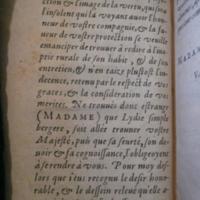 ction & l'image de la vertu, qui
l'insolent qui la voyant aussi l'hon
neur de vostre compagnie, & la fa-
ueur de vostre protection se veuille
emanciper de trouuer à redire à l'im
ptie rurale de son habit, & de son
entretien, & n'en taze plustost l'in-
decence, retenu par le respect de vos
graces, & la consideration de vos
merites. Ne trouués donc estrange
(MADAME) que Lydie simple
bergere, soit allée trouuer vostre
Majesté, puis que sa seureté, son de-
uoir, & sa cognoissance, l'obligeoyent
à se rendre à vous. Pour moy des-
lors que i'en eus recognu le desir hono
rable, & le dessein releué qu'elle a-
MADA